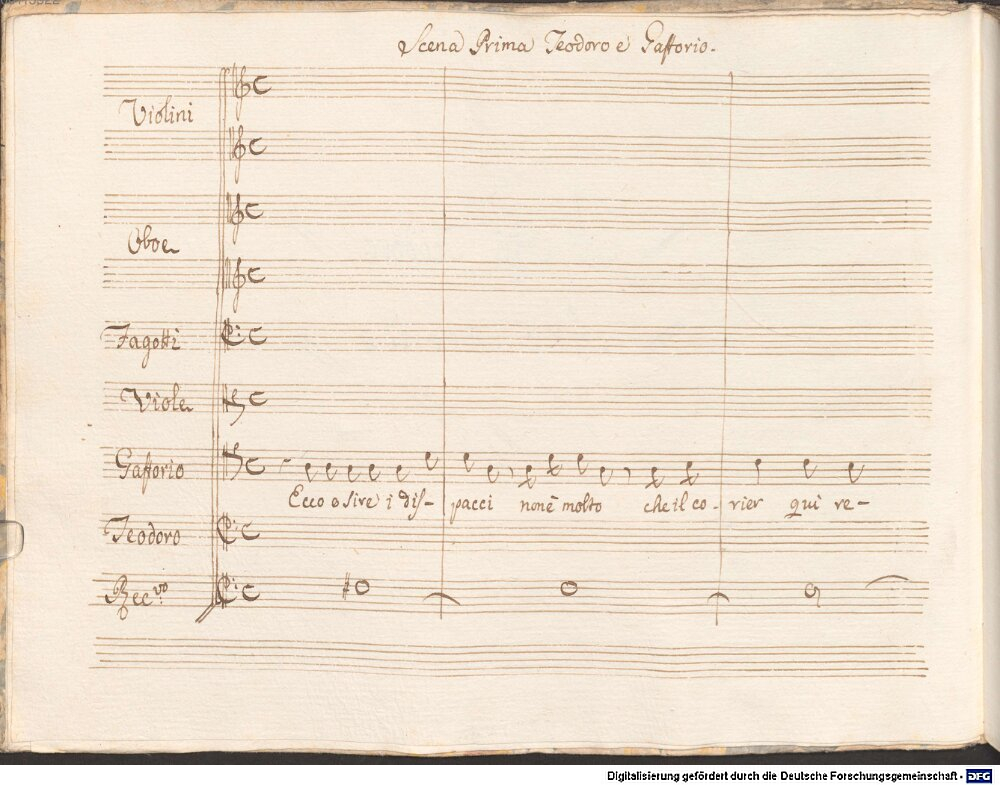 Scena Prima Teodoro e Gafforio.
Violini
Oboe
Fagotti
Viole
Gafforio
Ecco o Sire i dis- pacci non è molto che il co- rier qui re-
Teodoro
Rec.vo
Digitalisierung gefördert durch die Deutsche Forschungsgemeinschaft - DFG